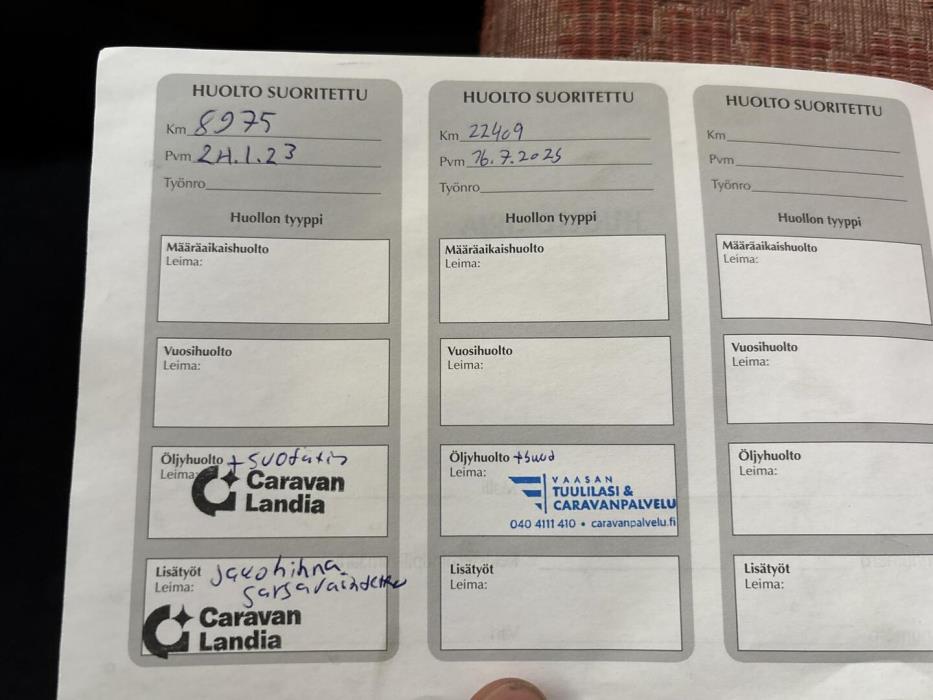 HUOLTO SUORITETTU
Km 8975
Pvm 24.1.23
Työnro
Huollon tyyppi
Määräaikaishuolto
Leima:
Vuosihuolto
Leima:
Öljyhuolto + suodatin
Leima:
Caravan
Landia
Lisätyöt jakohihna
Leima:
Caravan
Landia
HUOLTO SUORITETTU
Km 22409
Pvm 16.7.2025
Työnro
Huollon tyyppi
Määräaikaishuolto
Leima:
Vuosihuolto
Leima:
Öljyhuolto +suod
Leima:
VAASAN
TUULILASI &
CARAVANPALVELU
040 4111 410 • caravanpalvelu.fi
Lisätyöt
Leima:
HUOLTO SUORITETTU
Km
Pvm
Työnro
Huollon tyyppi
Määräaikaishuolto
Leima:
Vuosihuolto
Leima:
Öljyhuolto
Leima:
Lisätyöt
Leima: